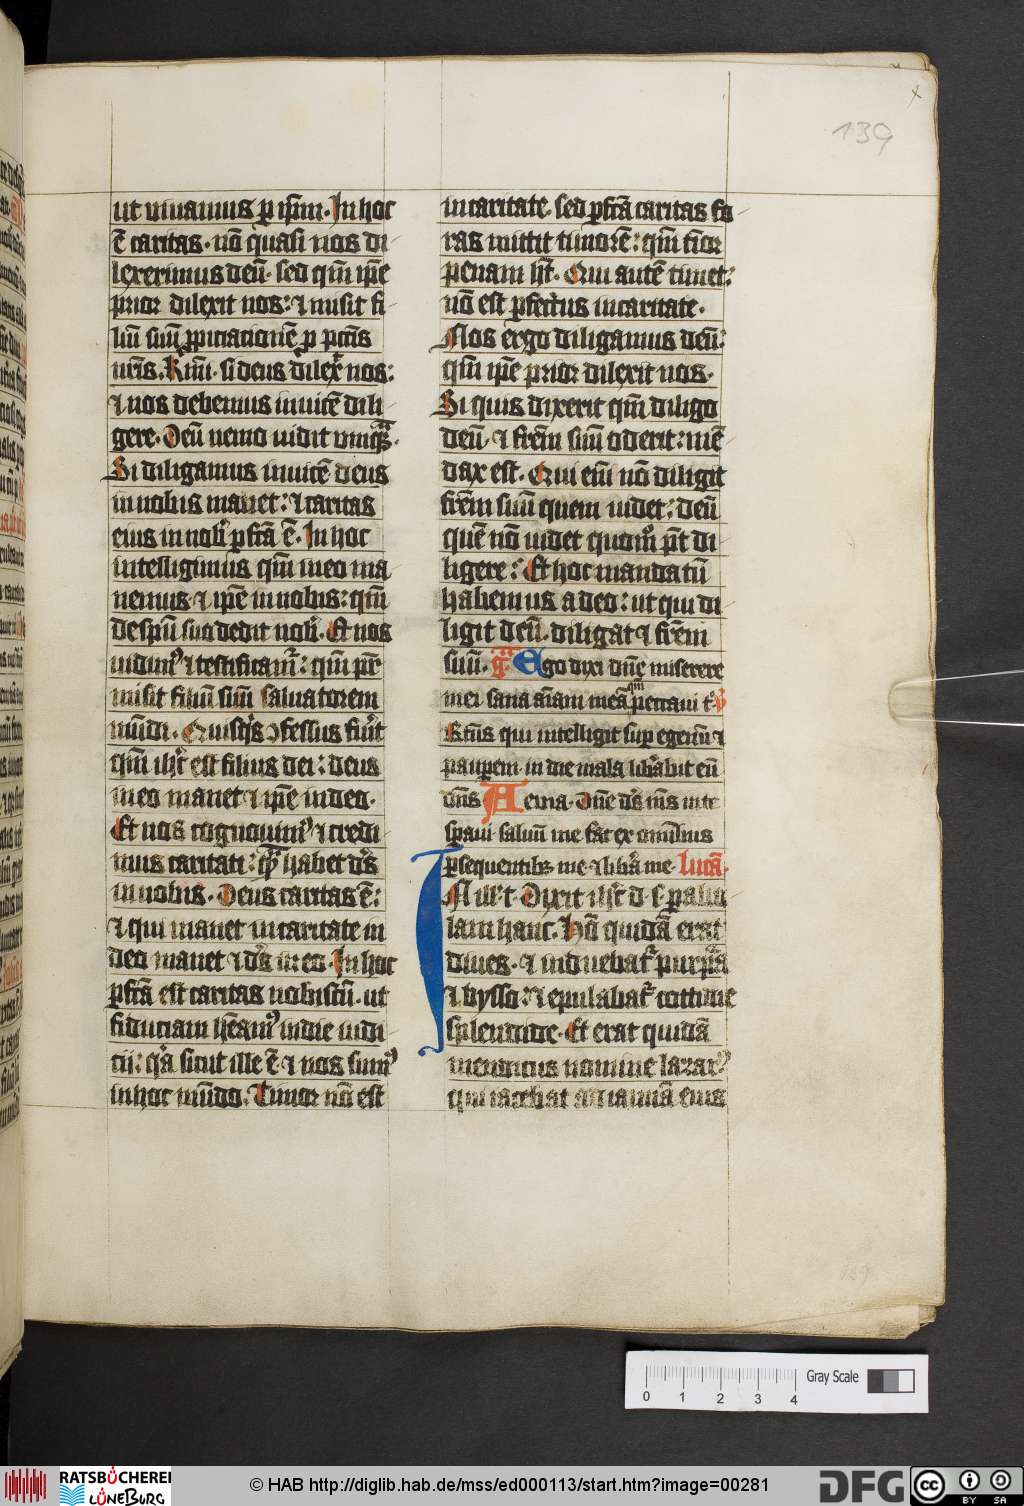 139
ut viuamus ꝑ ip̄m. In hoc
ē caritas. nō quasi nos di
lexerimus deū. sed qm̄ ip̄e
prior dilexit nos: ⁊ misit fi
liū suū ꝓpiciacionē ꝓ pctīs
nr̄is. Kr̄mi. si deus dilexꝰ nos:
⁊ nos debemus inuicē dili
gere. Deū nemo uidit vmqᷓ.
Si diligamus inuicē deus
in nobis manet: ⁊ caritas
eius in nobꝰ ꝑfcā ē. In hoc
intelligimus qm̄ in eo ma
nemus ⁊ ip̄e in nobis: qm̄
de spū suo dedit nobꝰ. Et nos
uidimꝰ ⁊ testificamꝰ: qm̄ pr̄
misit filiū suū saluatorem
mūdi. Quisqꝰs ꝯfessus fuꝰit
qm̄ ihꝰc est filius dei: deus
in eo manet ⁊ ip̄e in deo.
Et nos cognouimꝰ ⁊ credi
mus caritati: qᷓ habet dꝰs
in nobis. Deus caritas ē:
⁊ qui manet in caritate in
deo manet ⁊ dꝰs in eo. In hoc
ꝑfcā est caritas nobiscū. ut
fiduciam hēamꝰ in die iudi
cii: qꝛ sicut ille ē ⁊ nos sumꝰ
in hoc mūdo. Timor nō est
in caritate. sed ꝑfcā caritas fo
ras mittit timorē: qm̄ timor
penam hꝫt. Qui autē timet:
nō est ꝑfectus in caritate.
Nos ergo diligamus deū:
qm̄ ip̄e prior dilexit nos.
Si quis dixerit qm̄ diligo
deū. ⁊ frēm suū oderit: mē
dax est. Qui eni nō diligit
frēm suū quem uidet: deū
quē nō uidet quomꝰ pt̄ di
ligere: Et hoc mandatū
habemus a deo: ut qui di
ligit deū. diligat ⁊ frēm
suū. Ego dixi dn̄e miserere
mei sana aīam meā qm̄ peccaui tꝰ.
Btūs qui intelligit suꝑ egenū ⁊
pauꝑem in die mala libꝰabit eū
dn̄s Aeuia. Dn̄e dꝰs mꝰs in te
sꝑaui saluū me fac ex omībus
ꝑsequentibꝫ me ⁊ libꝰa me. lucā.
IN illꝰ t. Dixit ihꝰc d. s. parabu
lam hanc. Hō quidā erat
diues. ⁊ induebatꝰ purpꝰa
⁊ bysso: ⁊ epulabatꝰ cottidie
splendide. Et erat quidā
mendicus nomine lazarꝰ
qui iacebat ad ianuā eius
0 1 2 3 4 Gray Scale
RATSBÜCHEREI
LÜNEBURG
© HAB http://diglib.hab.de/mss/ed000113/start.htm?image=00281
DFG
cc BY SA